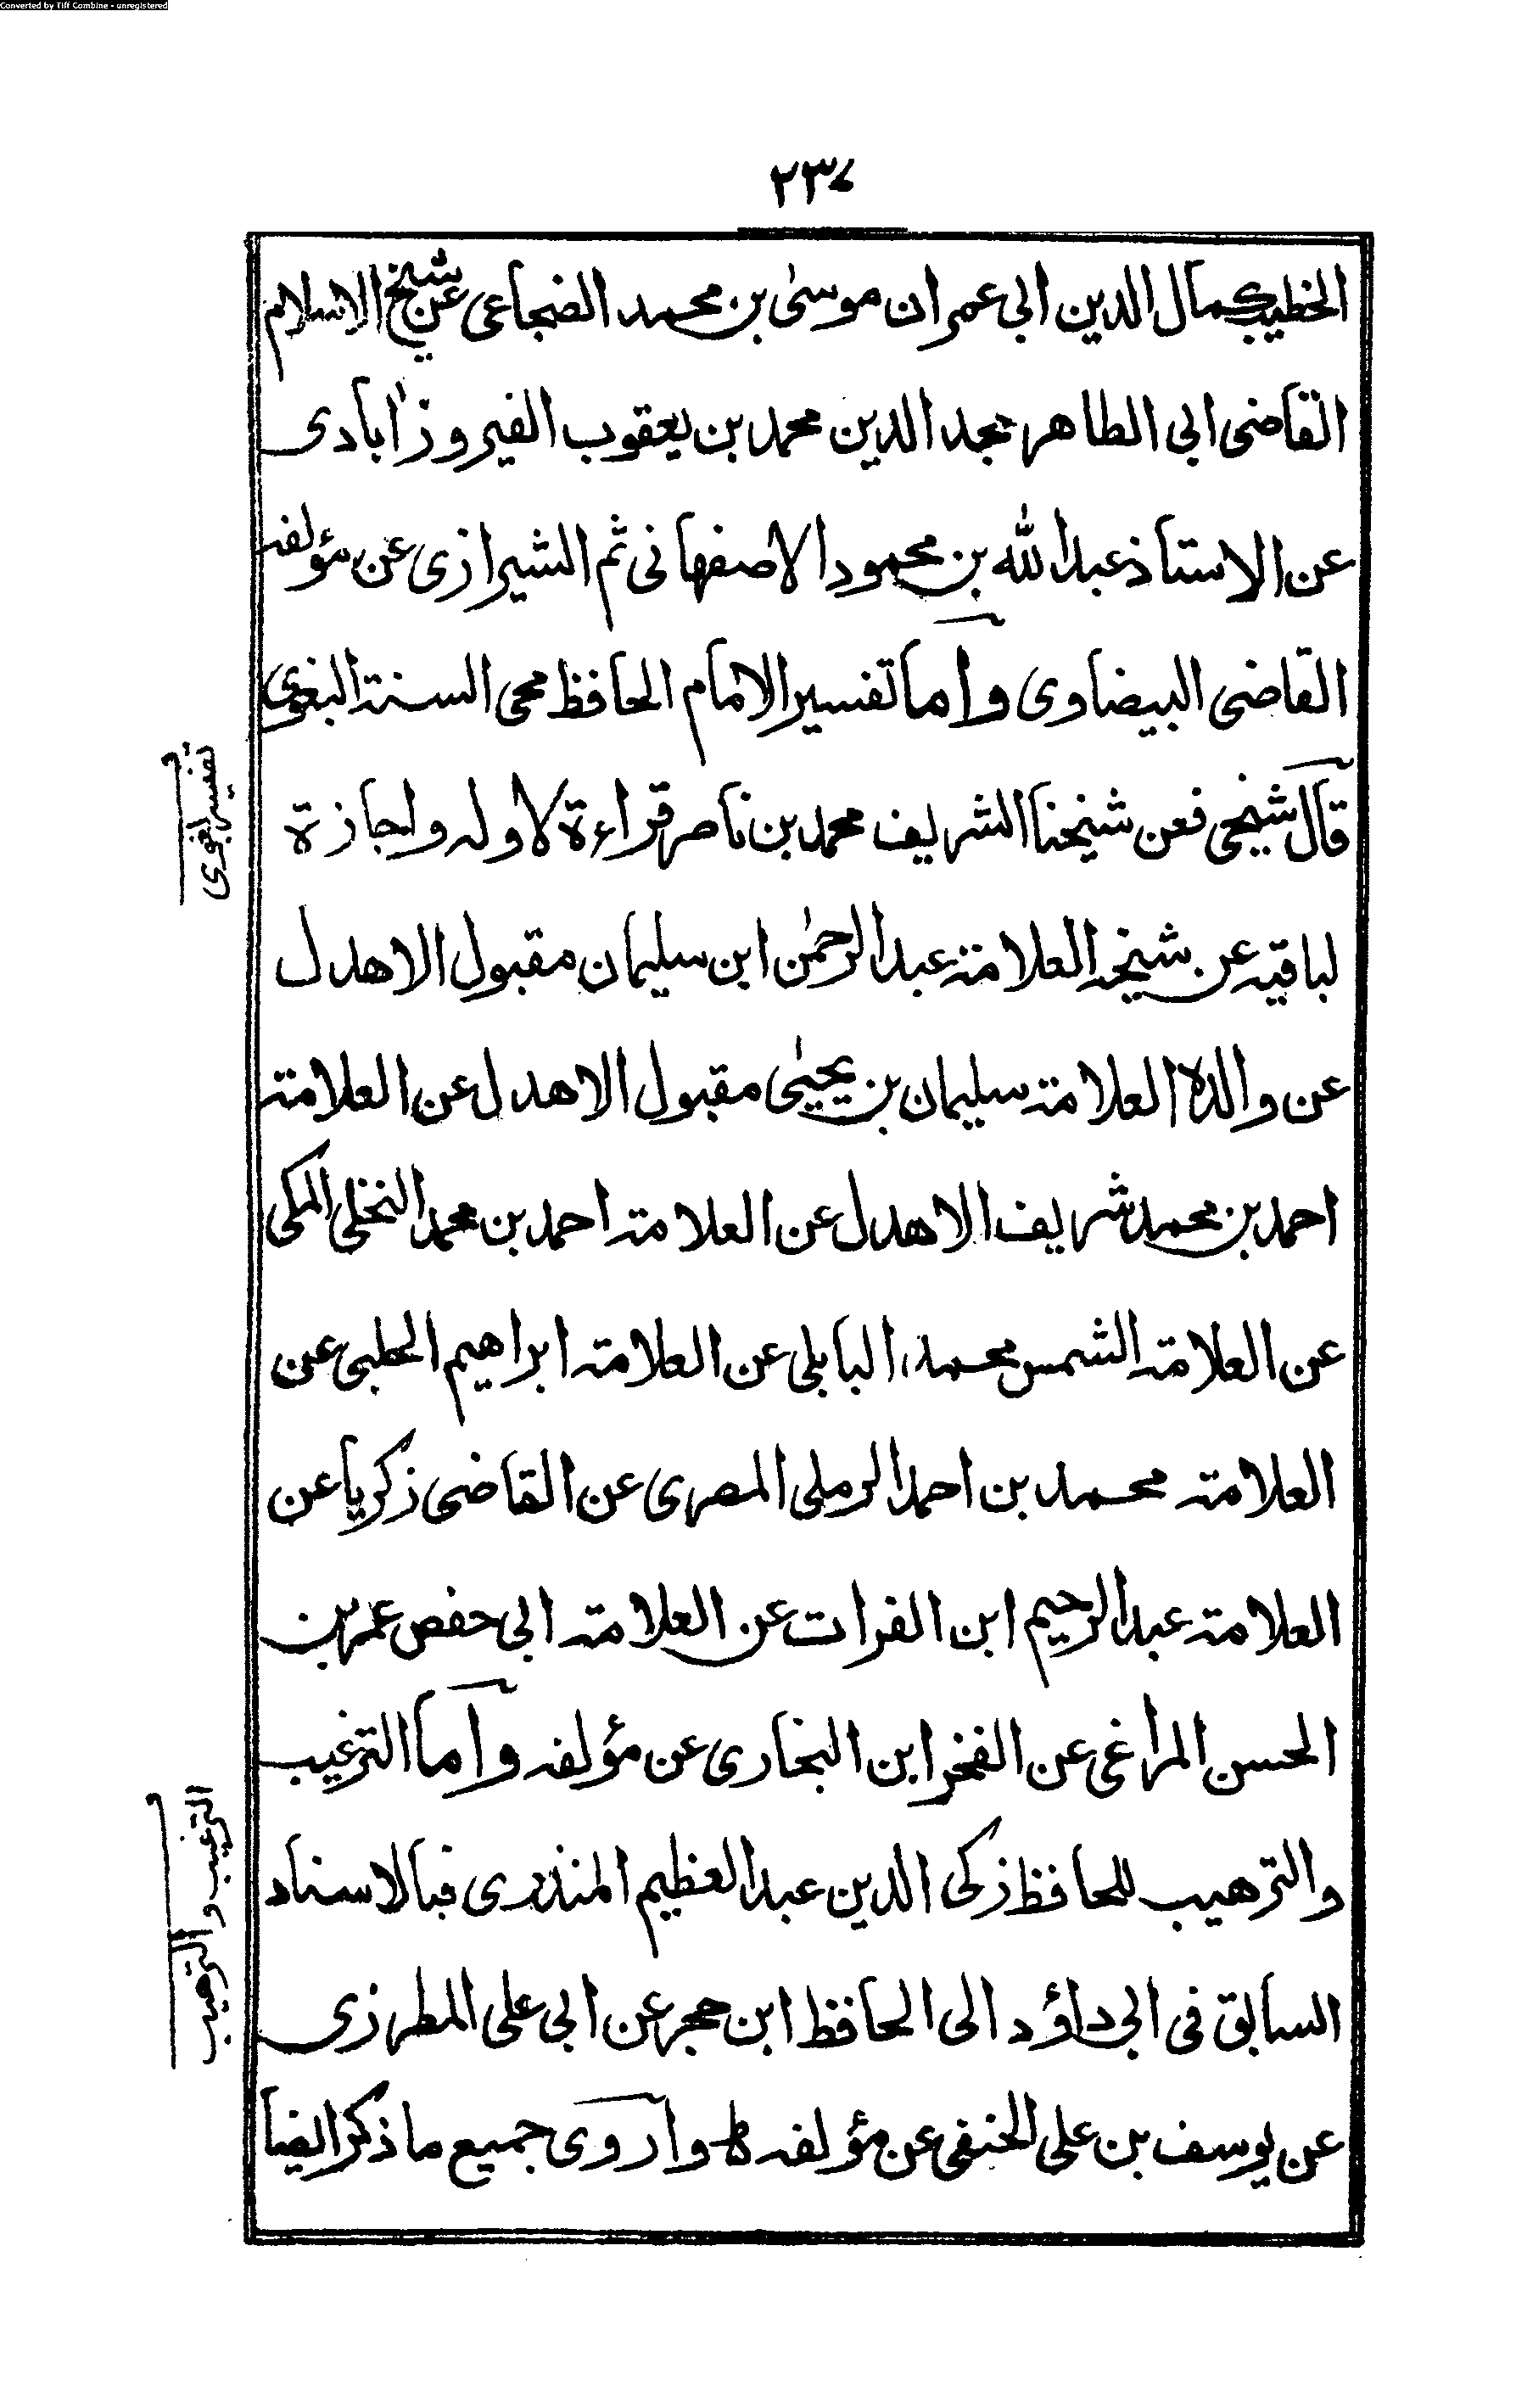 Converted by Tiff Combine - unregistered
٢٣٧
الخطيب كمال الدين ابى عمران موسىٰ بن محمد الضجاعى عن شيخ الاسلام
القاضى ابى الطاهر مجد الدين محمد بن يعقوب الفيروزاٰبادى
عن الاستاذ عبد الله بن محمود الاصفهانى ثم الشيرازى عن مؤلفه
القاضى البيضاوى وأما تفسير الامام الحافظ محى السنة البغوى
قال شيخى فعن شيخنا الشريف محمد بن ناصر قراءة لاوله واجازة
لباقيه عن شيخه العلامة عبد الرحمٰن ابن سليمان مقبول الاهدل
عن والده العلامة سليمان بن يحيىٰ مقبول الاهدل عن العلامة
احمد بن محمد شريف الاهدل عن العلامة احمد بن محمد النخلى المكى
عن العلامة الشمس محمد البابلى عن العلامة ابراهيم الحلبى عن
العلامة محمد بن احمد الرملى المصرى عن القاضى زكريا عن
العلامة عبد الرحيم ابن الفرات عن العلامة ابى حفص عمر بن
الحسن المراغى عن الفخر ابن البخارى عن مؤلفه وأما الترغيب
والترهيب للحافظ زكى الدين عبد العظيم المنذرى فبالاسناد
السابق فى ابى داؤد الى الحافظ ابن حجر عن ابى على المطرزى
عن يوسف بن على الحنفى عن مؤلفه ط وأروى جميع ما ذكر ايضا
تفسير بغوى
الترغيب والترهيب